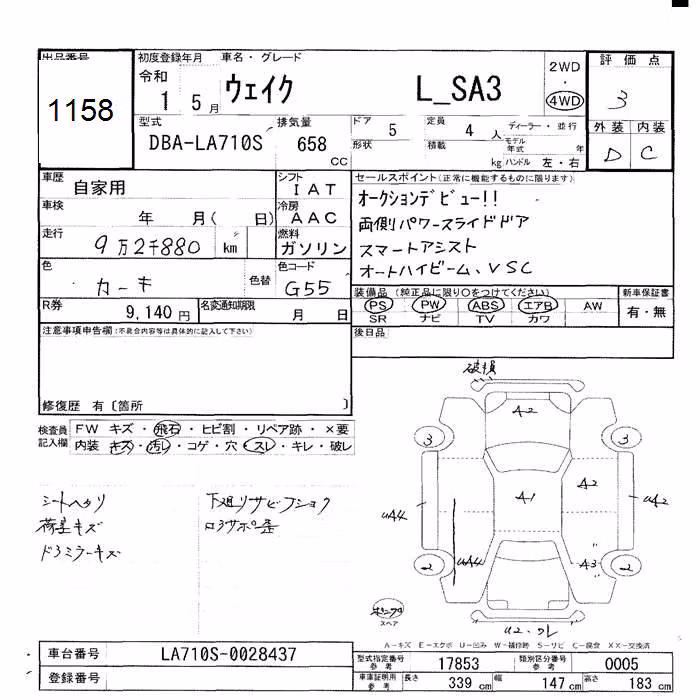 出品番号
1158
初度登録年月
令和
1 5 月
車名・グレード
ウェイク L_SA3
2WD
・
4WD
評価点
3
外装 内装
D C
型式
DBA-LA710S
排気量
658
CC
ドア
5
形状
定員
4 人
積載
kg
ディーラー・並行
モデル
年式 年
ハンドル 左・右
車歴
自家用
シフト
IAT
車検
年 月( 日)
冷房
AAC
走行
9万2千880 km
燃料
ガソリン
色
カーキ
色替
色コード
G55
R券
9,140 円
名変通知期限
月 日
セールスポイント(正常に機能するものに限ります)
オークションデビュー!!
両側パワースライドドア
スマートアシスト
オートハイビーム、VSC
装備品(純正品に限り○をつけてください)
PS PW ABS エアB AW
SR ナビ TV カワ
新車保証書
有・無
後日品
注意事項申告欄(不具合内容等は具体的に記入して下さい)
修復歴 有〔箇所 〕
検査員
記入欄
FW キズ・飛石・ヒビ割・リペア跡・×要
内装 キズ・汚レ・コゲ・穴・スレ・キレ・破レ
シートヘタリ
荷室キズ
ドラミラーキズ
下廻リサビフショク
コアサポ歪
破損
A2
3
3
A1
A2
uA4
uA2
uA4
A3
2
2
スペア
U2.ワレ
A-キズ E-エクボ U-凹み W-補修跡 S-サビ C-腐食 XX-交換済
車台番号
LA710S-0028437
登録番号
型式指定番号
参考
17853
類別区分番号
参考
0005
車庫証明用
参考
長さ 339 cm 幅 147 cm 高さ 183 cm